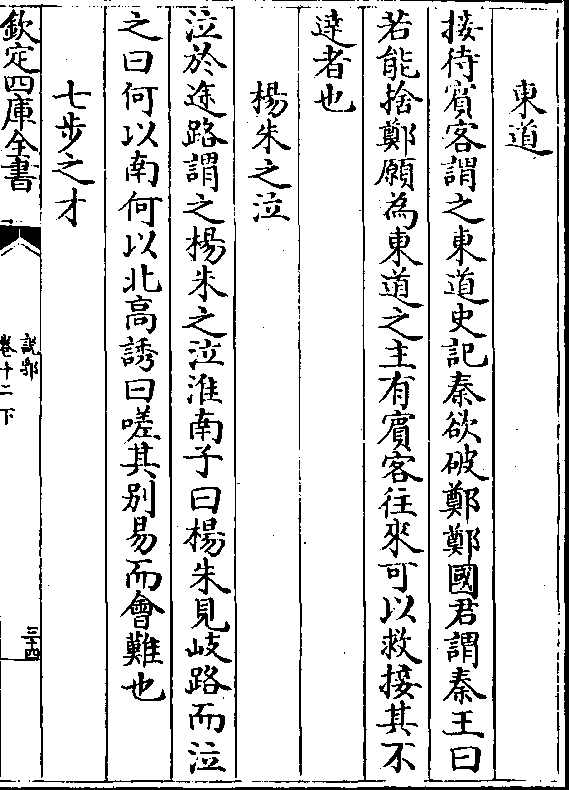 東道
接待賓客謂之東道史記秦欲破鄭鄭國君謂秦王曰
若能捨鄭願為東道之主有賓客往來可以救接其不
達者也
楊朱之泣
泣於途路謂之楊朱之泣淮南子曰楊朱見岐路而泣
之曰何以南何以北高誘曰嗟其别易而會難也
七步之才
欽定四庫全書
說郛
卷十二下
三十四